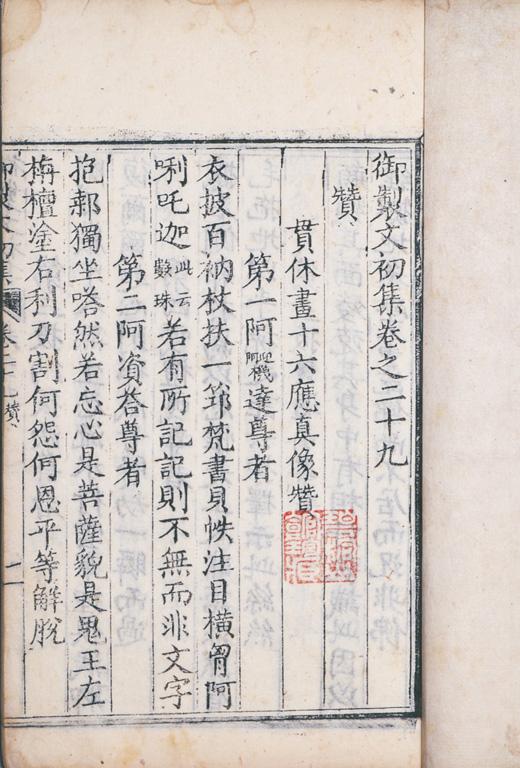 御製文初集卷之二十九
贊
貫休畫十六應真像贊
第一阿迎機達尊者
衣披百衲杖扶一筇梵書貝帙注目橫胷阿
唎吒迦此云數珠若有所記記則不無而非文字
第二阿資荅尊者
抱鄰獨坐嗒然若忘心是菩薩貌是鬼王左
栴檀塗右利刀割何怨何恩平等解脫